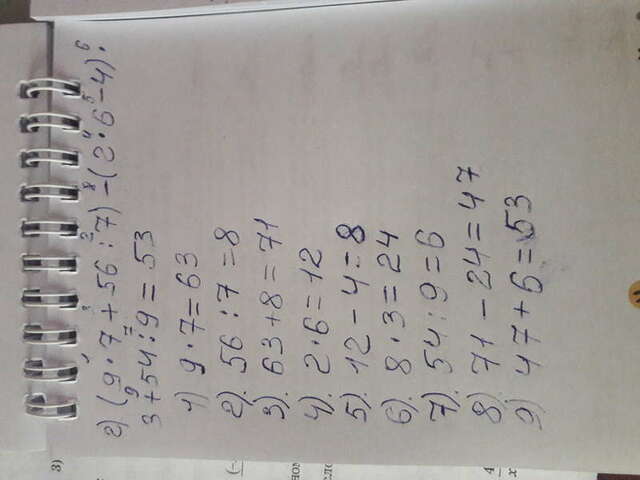 г) (9·7+56:7)-(2·6-4)·
3+54:9=53
1) 9·7=63
2). 56:7=8
3). 63+8=71
4). 2·6=12
5). 12-4=8
6). 8·3=24
7). 54:9=6
8) 71-24=47
9) 47+6=53